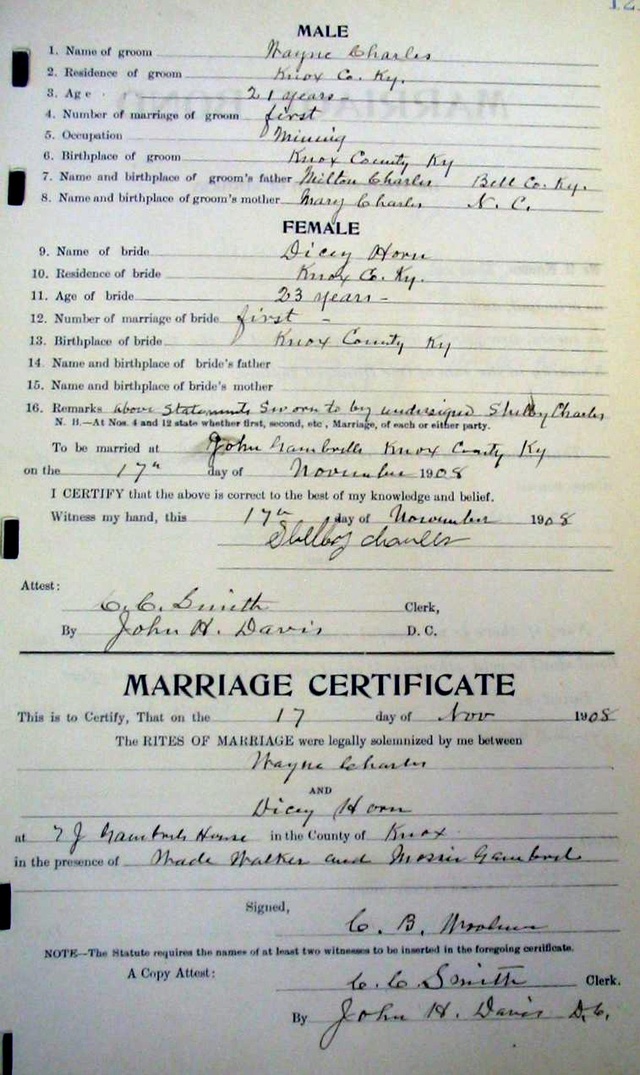 MALE
1. Name of groom Wayne Charles
2. Residence of groom Knox Co. Ky.
3. Age 21 years
4. Number of marriage of groom first
5. Occupation Mining
6. Birthplace of groom Knox County Ky
7. Name and birthplace of groom's father Milton Charles Bell Co. Ky.
8. Name and birthplace of groom's mother Mary Charles N. C.
FEMALE
9. Name of bride Dicey Horn
10. Residence of bride Knox Co. Ky.
11. Age of bride 23 years -
12. Number of marriage of bride first -
13. Birthplace of bride Knox County Ky
14. Name and birthplace of bride's father
15. Name and birthplace of bride's mother
16. Remarks above statements sworn to by undersigned Shelby Charles
N. B.—At Nos. 4 and 12 state whether first, second, etc., Marriage, of each or either party.
To be married at John Gambrells Knox County Ky
on the 17th day of November 1908
I CERTIFY that the above is correct to the best of my knowledge and belief.
Witness my hand, this 17th day of November 1908
Shelby Charles
Attest:
C. C. Smith Clerk,
By John H. Davis D. C.
MARRIAGE CERTIFICATE
This is to Certify, That on the 17 day of Nov 1908
The RITES OF MARRIAGE were legally solemnized by me between
Wayne Charles
AND
Dicey Horn
at J Gambrels House in the County of Knox
in the presence of Wade Walker and Gambrel
Signed,
C. B.
NOTE—The Statute requires the names of at least two witnesses to be inserted in the foregoing certificate.
A Copy Attest: C. C. Smith Clerk.
By John H. Davis D. C.